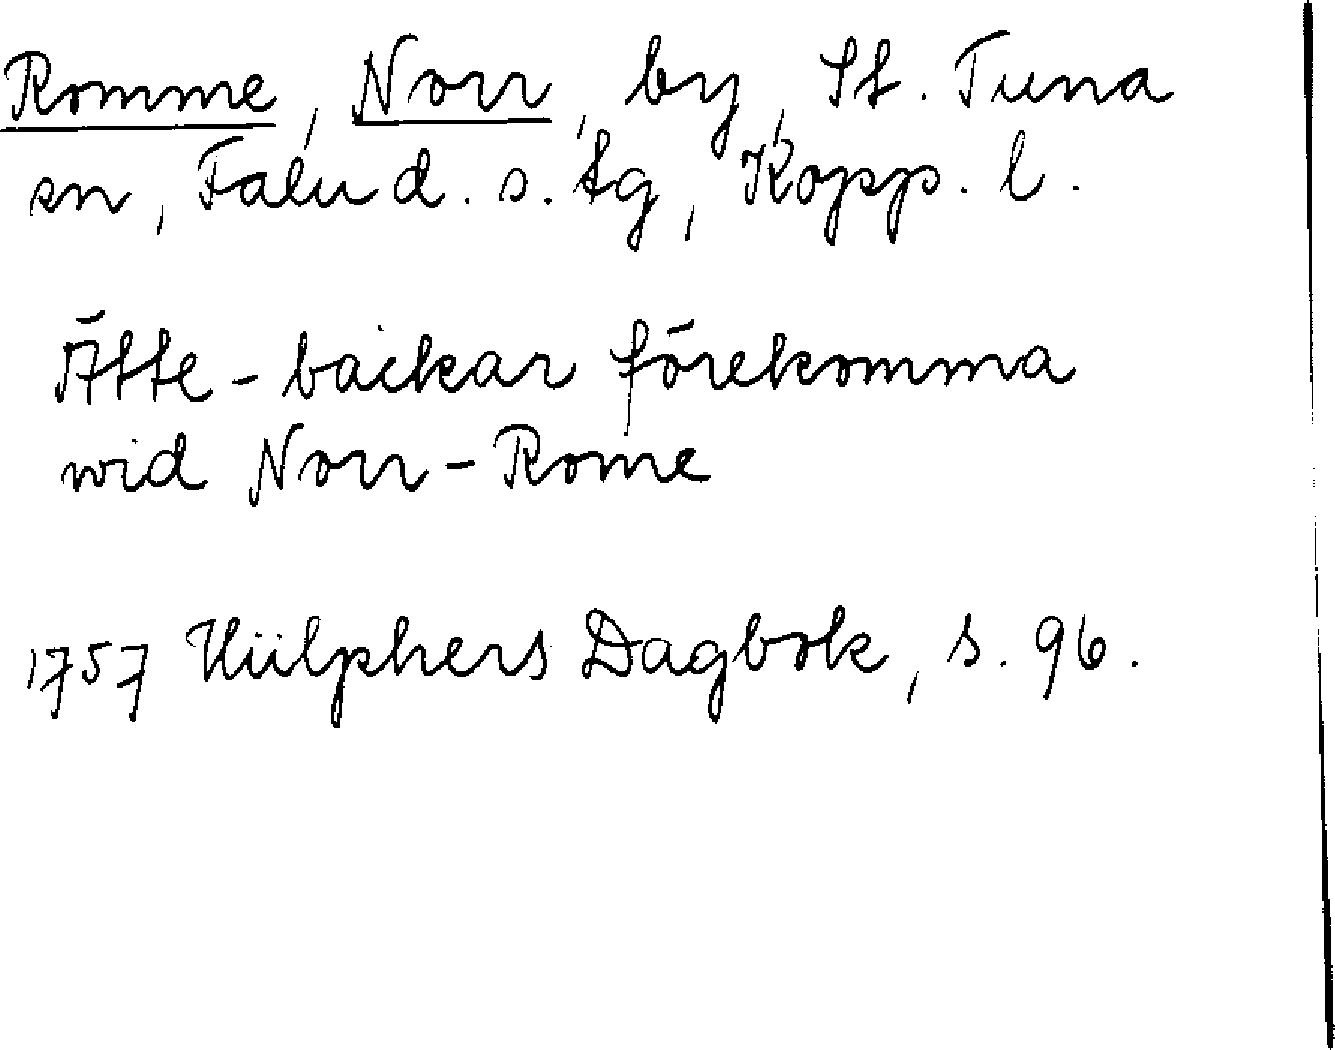 Romme, Norr, by, St. Tuna
sn, Falu d. s. tg, Kopp. l.
Ätte-backar förekomma
wid Norr-Rome
1757 Hülphers Dagbok, s. 96.